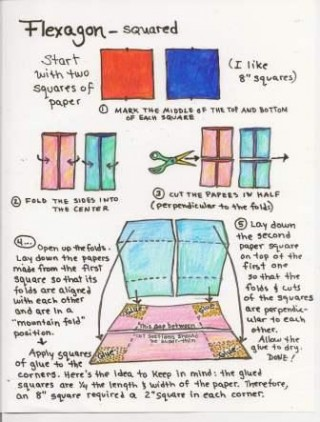 Flexagon - squared
Start
with two
squares of
paper
(I like
8" squares)
① MARK THE MIDDLE OF THE TOP AND BOTTOM
OF EACH SQUARE
② FOLD THE SIDES INTO
THE CENTER
③ CUT THE PAPERS IN HALF
(perpendicular to the folds)
④... Open up the folds.
Lay down the papers
made from the first
square so that its
folds are aligned
with each other
and are in a
"mountain fold"
position.
Apply squares
of glue to the
corners. Here's the idea to keep in mind: the glued
squares are ¼ the length & width of the paper. Therefore,
an 8" square required a 2" square in each corner.
⑤ Lay down
the second
paper square
on top of the
first one
so that the
folds & cuts
of the squares
are perpendic-
ular to each
other.
Allow the
glue to dry.
DONE!
glue
glue
This gap between
glue
glue